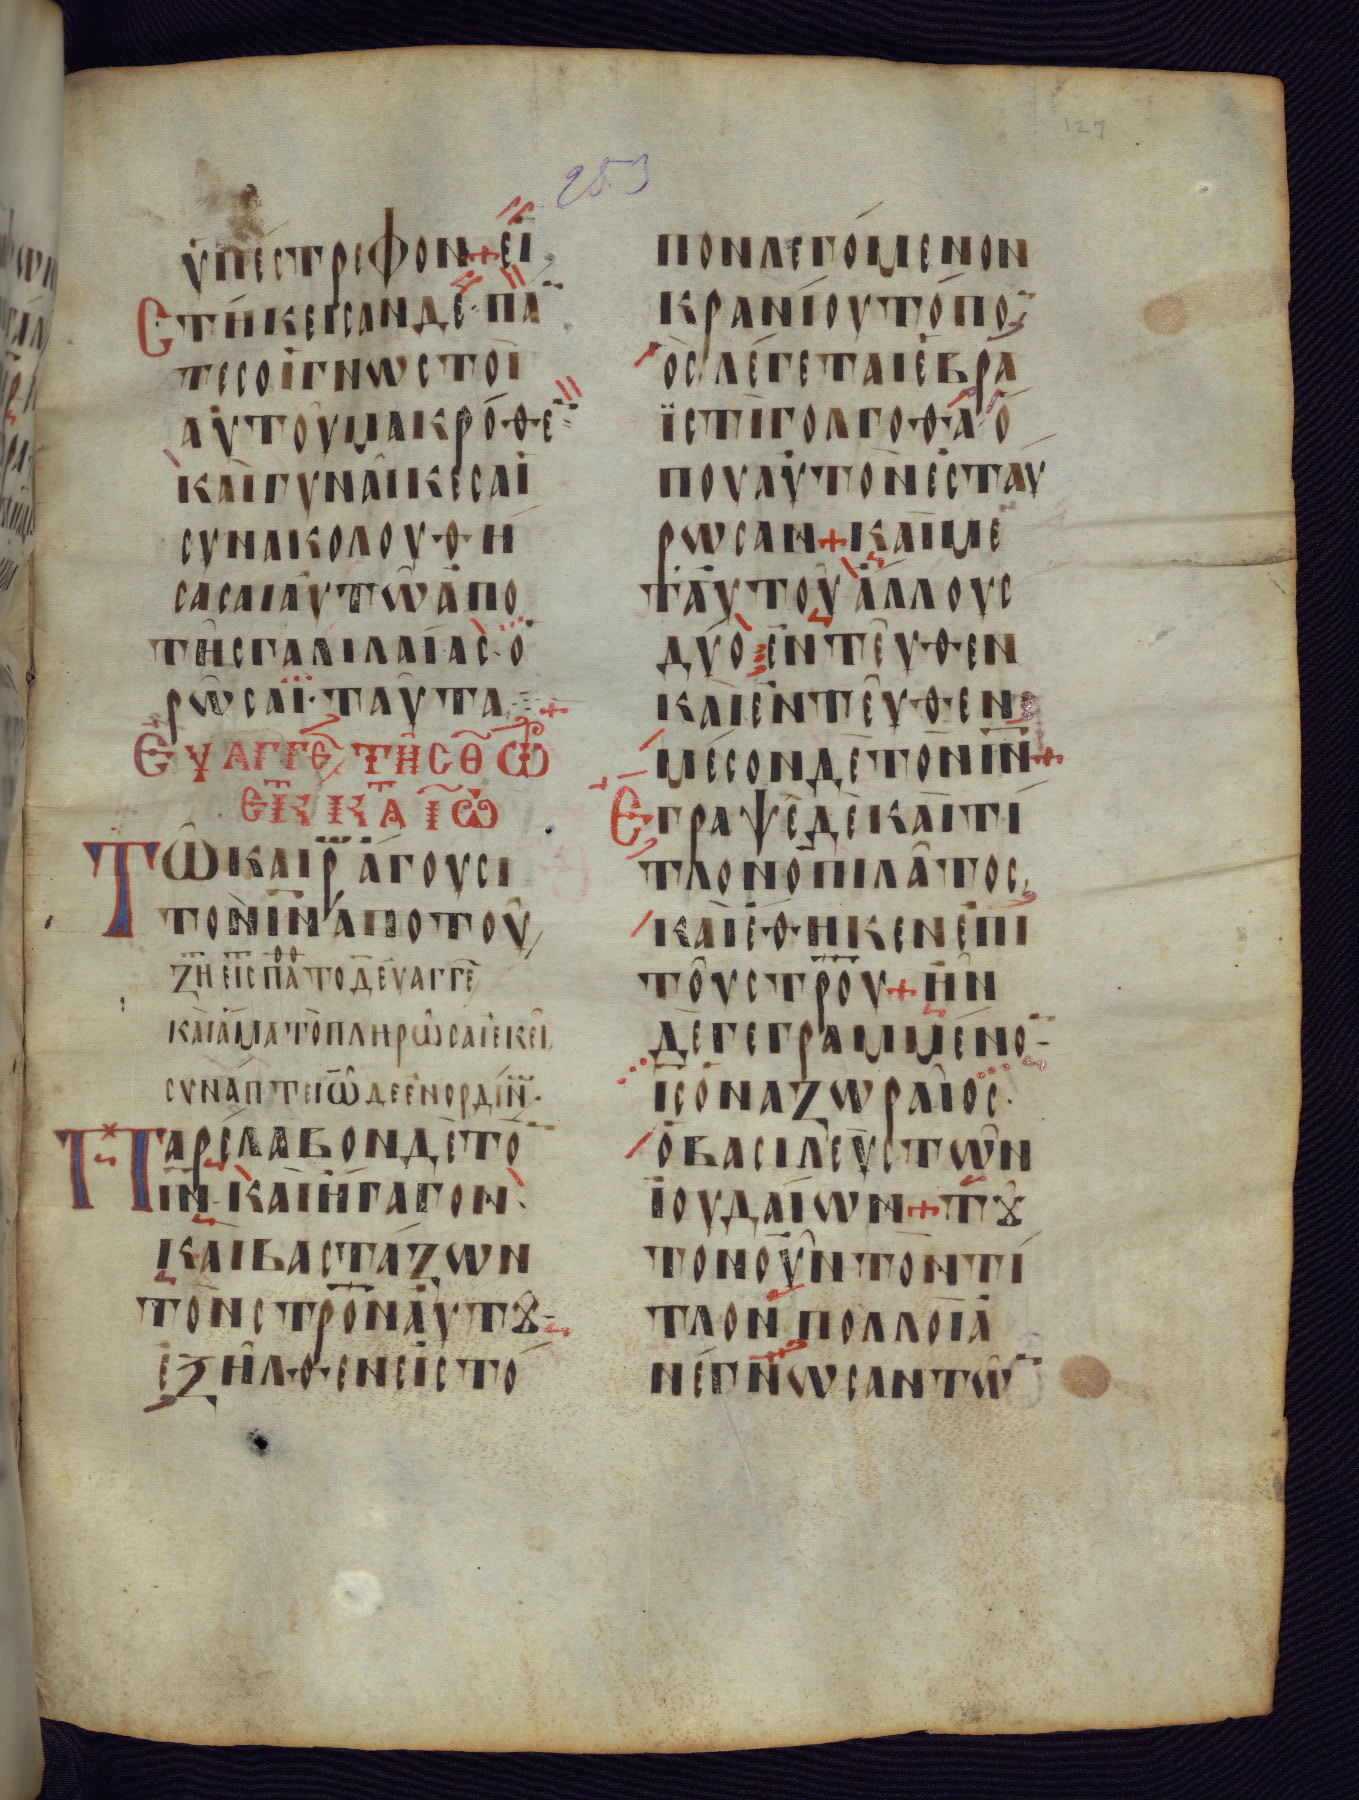 127
253
ὑπέστρεφον + εἱ
στήκεισαν δὲ πά
τες οἱ γνωστοὶ
αὐτοῦ μακρόθε
καὶ γυναῖκες αἱ
συνακολουθή
σασαι αὐτῶ ἀπὸ
τῆς γαλιλαίας· ὁ
ρῶσαι· ταῦτα +
Εὐαγγε τῆς θ ὥ
ἐκ κ τ α ἰω
Τῶ καιρ ἄγουσι
τὸν ιν ἀπὸ τοῦ
ζη εἰς πα τὸ δ εὐαγγε
καὶ ἅμα τὸ πληρῶσαι ἐκεῖ
συνάπτει ὧδε ἐν ορδίν
Παρέλαβον δὲ τὸ
ιν· καὶ ἤγαγον
καὶ βαστάζων
τὸν στρον αὐτȣ
ἐξῆλθεν εἰς τὸ
πον λεγόμενον
κρανίου τόπο
ὃς λέγεται ἑβρα
ϊστὶ γολγοθᾶ ὅ
που αὐτὸν ἐσταύ
ρωσαν + καὶ με
τ αὐτοῦ ἄλλους
δύο ἐντεῦθεν
καὶ ἐντεῦθεν
μέσον δὲ τὸν ιν +
Ἔγραψε δὲ καὶ τί
τλον ὁ πιλᾶτος
καὶ ἔθηκεν ἐπὶ
τοῦ στρου + ἦν
δὲ γεγραμμένο
ις ὁ ναζωραῖος·
ὁ βασιλεὺς τῶν
ἰουδαίων + τȣ
τον οὖν τὸν τί
τλον πολλοὶ ἀ
νέγνωσαν τῶ